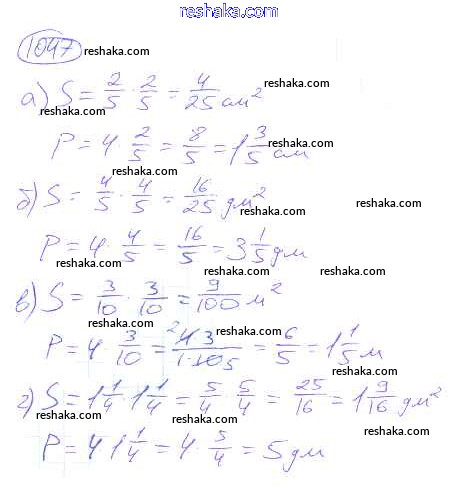 reshaka.com
1047 reshaka.com
reshaka.com
а) S = 2/5 · 2/5 = 4/25 см²
reshaka.com reshaka.com
P = 4 · 2/5 = 8/5 = 1 3/5 см
reshaka.com reshaka.com
б) S = 4/5 · 4/5 = 16/25 дм²
reshaka.com reshaka.com reshaka.com
P = 4 · 4/5 = 16/5 = 3 1/5 дм
reshaka.com reshaka.com reshaka.com
в) S = 3/10 · 3/10 = 9/100 м²
reshaka.com reshaka.com
P = 4 · 3/10 = ²4 · 3/1 · 10 5 = 6/5 = 1 1/5 м
reshaka.com reshaka.com
г) S = 1 1/4 · 1 1/4 = 5/4 · 5/4 = 25/16 = 1 9/16 дм²
reshaka.com reshaka.com reshaka.com
P = 4 · 1 1/4 = 4 · 5/4 = 5 дм
reshaka.com reshaka.com